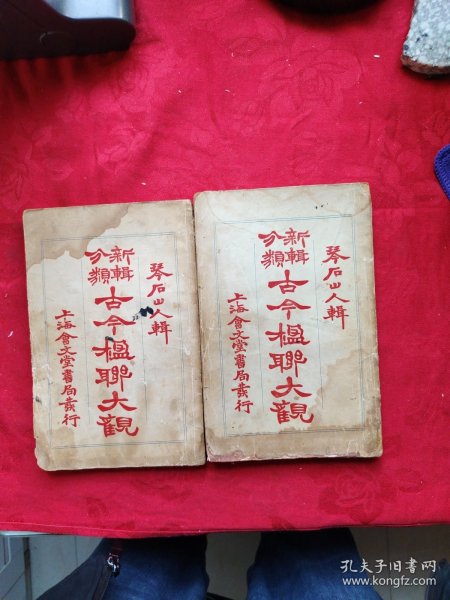 琴石山人輯
新輯分類
古今楹聯大觀
上海會文堂書局發行
琴石山人輯
新輯分類
古今楹聯大觀
上海會文堂書局發行
孔夫子旧书网
www.kongfz.com